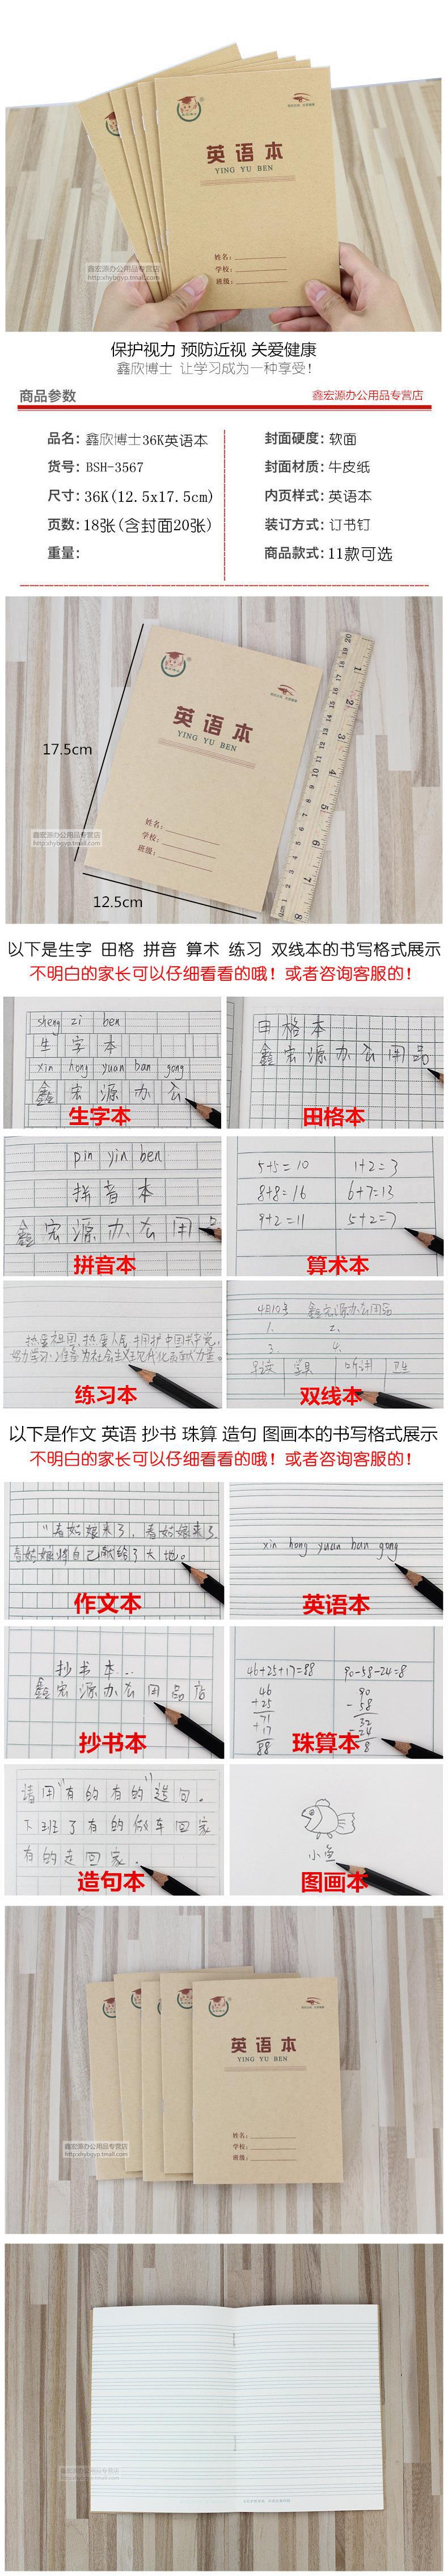 英语本
YING YU BEN
姓名:
学校:
班级:
鑫宏源办公用品专营店
http://xhybgyp.tmall.com
保护视力 预防近视 关爱健康
鑫欣博士 让学习成为一种享受!
商品参数
鑫宏源办公用品专营店
品名: 鑫欣博士36K英语本
封面硬度: 软面
货号: BSH-3567
封面材质: 牛皮纸
尺寸: 36K(12.5x17.5cm)
内页样式: 英语本
页数: 18张(含封面20张)
装订方式: 订书钉
重量:
商品款式: 11款可选
英语本
YING YU BEN
姓名:
学校:
班级:
17.5cm
12.5cm
鑫宏源办公用品专营店
http://xhybgyp.tmall.com
以下是生字 田格 拼音 算术 练习 双线本的书写格式展示
不明白的家长可以仔细看看的哦! 或者咨询客服的!
sheng zi ben
生字本
xin hong yuan ban gong
鑫宏源办公
生字本
田格本
鑫宏源办公用品
田格本
pin yin ben
拼音本
鑫宏源办公用品
拼音本
5+5=10 1+2=3
8+8=16 6+7=13
9+2=11 5+2=7
算术本
热爱祖国,热爱人民,拥护中国共产党,
努力学习,准备为社会主义现代化贡献力量。
练习本
4月10号 鑫宏源办公用品
1. 2.
3. 4.
双线本
以下是作文 英语 抄书 珠算 造句 图画本的书写格式展示
不明白的家长可以仔细看看的哦! 或者咨询客服的!
“春姑娘来了,春姑娘来了
春姑娘将自己献给了大地。
作文本
xin hong yuan ban gong
英语本
抄书本..
鑫宏源办公用品店
抄书本
46+25+17=88 90-58-24=8
46
+25
71
+17
88
90
-58
32
-24
8
珠算本
请用“有的有的”造句。
下班了有的做车回家
有的走回家.
造句本
小鱼
图画本
英语本
YING YU BEN
姓名:
学校:
班级:
鑫宏源办公用品专营店
http://xhybgyp.tmall.com
鑫宏源办公用品专营店
http://xhybgyp.tmall.com